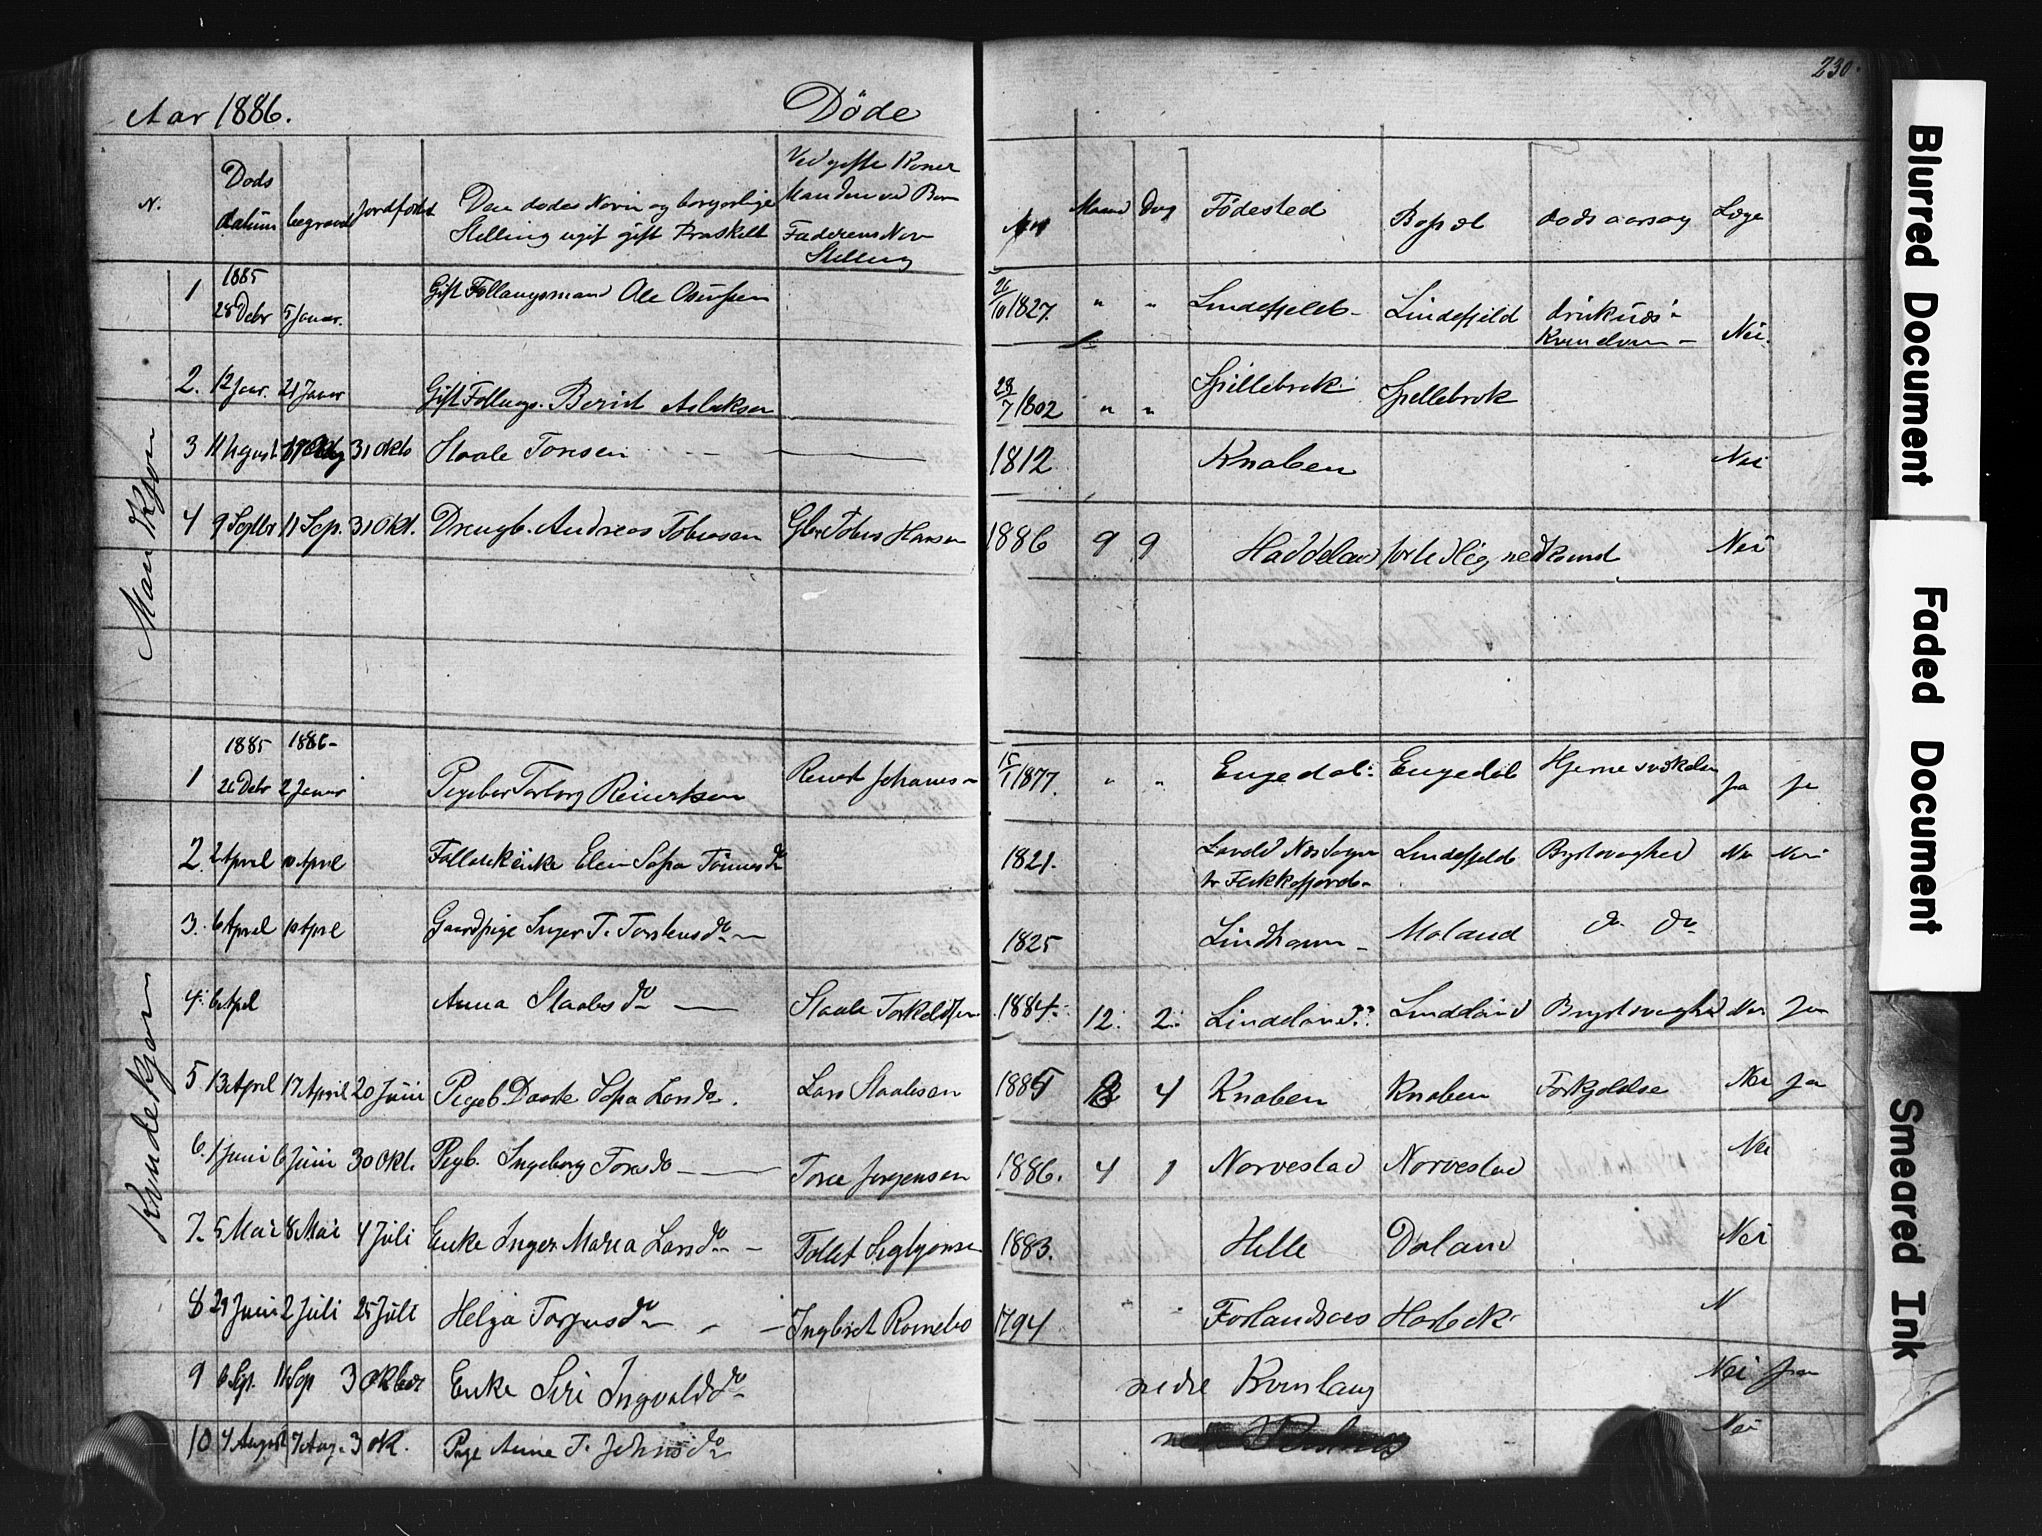 230.
Aar 1886. Døde
N. Døds datum begravet Jordfæstet Den dødes Navn og borgerlige Stilling ugift gift Fraskilt Ved gifte Koner Manden ved Børn Faderens Nav Stilling
Maaned Dag Fødested Bopæl dødsaarsag Læge
Mandkjøn
1 1885 28 Debr 5 Januar. Gift Follaugsmand Ole 26/10 1827. " " Lindefjeld Lindefjeld Nei.
2. 12 Jar. 21 Januar Gift Follaugs. Berint Aslaksen 28/7 1802 " " Spillebrok Spillebrok
3 11 August 31 Okto Staale Tonsen 1812 Knaben Nei
4 9 Septbr 11 Sep. 31 Okt. Drengb. Andreas Tobiasen Tobias Hansen 1886 9 9 Haddeland for tidlig nedkomst Nei
Kvindekjøn
1 1885 26 Debr 1886 2 Januar Pigebar Torborg Reinertsen Reinert Johannesen 15/1 1877. " " Engedal Engedal Hjernesvækelse ja ja
2. 2 April 10 April Enke Elen Sofia Tønnesdo 1821. Næs Sogn v. Flekkefjord Lindefjeld Brystsvaghed Nei Nei
3. 6 April 10 April Gaardpige Inger T. Torstensdo 1825 Lindhom Moland do do
4. 6 Apl Anna Staalesdo Staale Torkeldsen 1884. 12. 2. Lindeland Lindeland Brystsvaghed Nei Ja
5 13 April 17 April 20 Juni Pigeb Sofia Larsdo. Lars Staalesen 1885 8 4 Knaben Knaben Forkjølelse Nei ja
6. 1 Juni 6 Juni 30 Okt. Pigb. Ingeborg Toresdo Tore Jørgensen 1886. 4 1 Norvestad Norvestad Nei
7. 5 Mai 8 Mai 4 Juli Enke Inger Maria Larsdo 1883. Helle Doland Nei
8 29 Juni 2 Juli 25 Juli Helga Torjusdo Ingbret Romebo 1794 Horbek N
9 6 Sep. 11 Sep 3 Oktbr Enke Siri Ingvaldsdo nedre Kvinlaug Nei
10 4 August 7 Aug. 3 Ok. Pige Anne T. Johnsdo Nei
Blurred Document
Faded Document
Smeared Ink